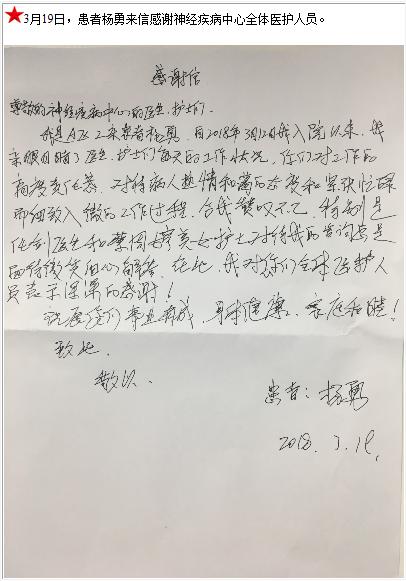 ★3月19日，患者杨勇来信感谢神经疾病中心全体医护人员。
感谢信
尊敬的神经疾病中心的医生、护士们：
我是A区2床患者杨勇，自2018年3月12日我入院以来，我
亲眼目睹了医生、护士们每天的工作状况，你们对工作的
高度责任感、对待病人热情和蔼的态度和紧张忙碌
而细致入微的工作过程，令我赞叹不已，特别是
任剑医生和护士对待我的咨询总是
面待微笑细心解答。在此，我对你们全体医护人
员表示深深的感谢！
祝愿你们事业有成、身体健康、家庭和睦！
致此
敬以
患者：杨勇
2018.3.19.